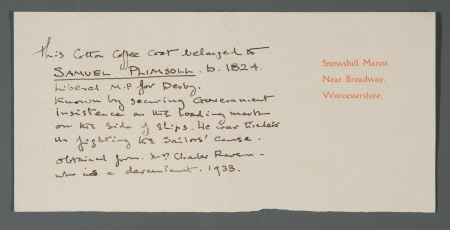 This Cotton Coffee Coat belonged to
SAMUEL PLIMSOLL. b. 1824.
Liberal M.P for Derby.
Known by securing Government
insistence on the loading mark
on the side of ships. He was tireless
in fighting the Sailors' cause.
obtained from Charles Raven -
who is a descendant. 1933.
Snowshill Manor,
Near Broadway,
Worcestershire.